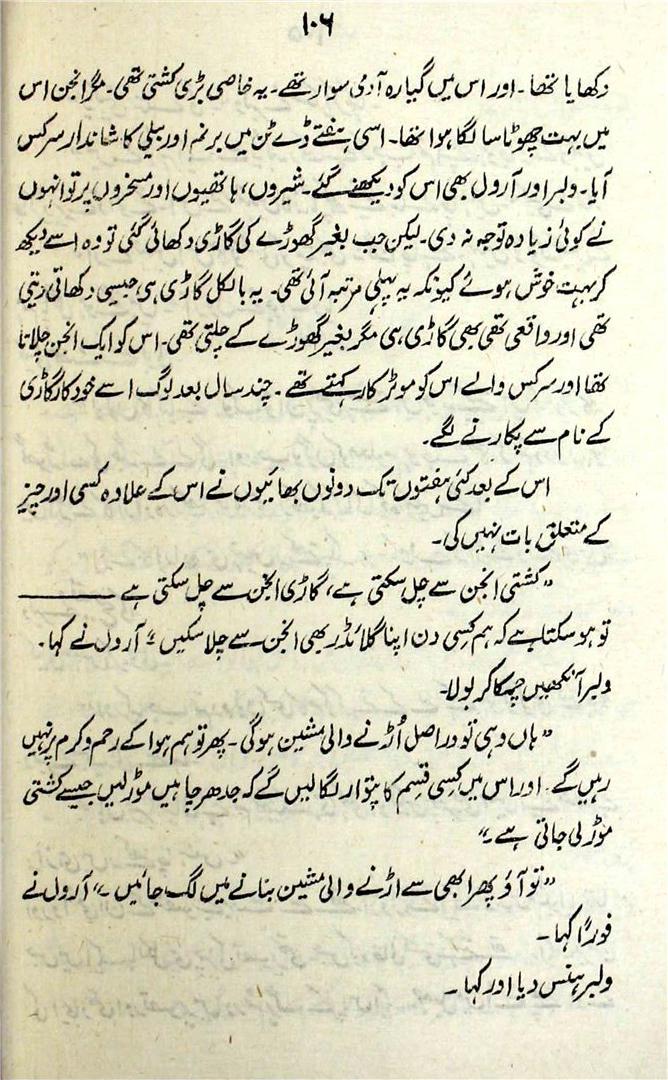 ۱۰۶
دکھایا تھا۔ اور اس میں گیارہ آدمی سوار تھے۔ یہ خاصی بڑی کشتی تھی۔ مگر انجن اس
میں بہت چھوٹا سا لگا ہوا تھا۔ اسی ہفتے ڈے ٹن میں برنم اور بیلی کا شاندار سرکس
آیا۔ ولبر اور آرول بھی اس کو دیکھنے گئے۔ شیروں، ہاتھیوں اور مسخروں پر تو انہوں
نے کوئی زیادہ توجہ نہ دی۔ لیکن جب بغیر گھوڑے کی گاڑی دکھائی گئی تو وہ اسے دیکھ
کر بہت خوش ہوئے کیونکہ یہ پہلی مرتبہ آئی تھی۔ یہ بالکل گاڑی ہی جیسی دکھاتی دیتی
تھی اور واقعی تھی بھی گاڑی ہی مگر بغیر گھوڑے کے چلتی تھی۔ اس کو ایک انجن چلاتا
تھا اور سرکس والے اس کو موٹر کار کہتے تھے۔ چند سال بعد لوگ اسے خود کار گاڑی
کے نام سے پکارنے لگے۔
اس کے بعد کئی ہفتوں تک دونوں بھائیوں نے اس کے علاوہ کسی اور چیز
کے متعلق بات نہیں کی۔
"کشتی انجن سے چل سکتی ہے، گاڑی انجن سے چل سکتی ہے ————
تو ہو سکتا ہے کہ ہم کسی دن اپنا گلائڈر بھی انجن سے چلا سکیں" آرول نے کہا۔
ولبر آنکھیں چمکا کر بولا۔
"ہاں وہی تو دراصل اُڑنے والی مشین ہوگی۔ پھر تو ہم ہوا کے رحم و کرم پر نہیں
رہیں گے۔ اور اس میں کسی قسم کا پتوار لگا لیں گے کہ جدھر چاہیں موڑ لیں جیسے کشتی
موڑ لی جاتی ہے۔"
"تو آؤ پھر ابھی سے اڑنے والی مشین بنانے میں لگ جائیں۔" آرول نے
فوراً کہا۔
ولبر ہنس دیا اور کہا۔